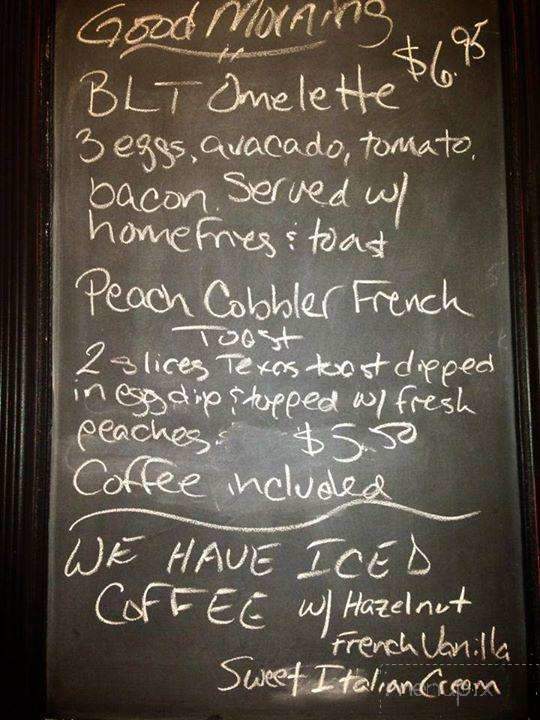 Good Morning
BLT Omelette $6.95
3 eggs, avacado, tomato,
bacon. Served w/
homefries & toast
Peach Cobbler French
Toast
2 slices Texas toast dipped
in egg dip & topped w/ fresh
peaches. $5.50
Coffee included
WE HAVE ICED
COFFEE w/ Hazelnut
French Vanilla
Sweet Italian Cream
menupix